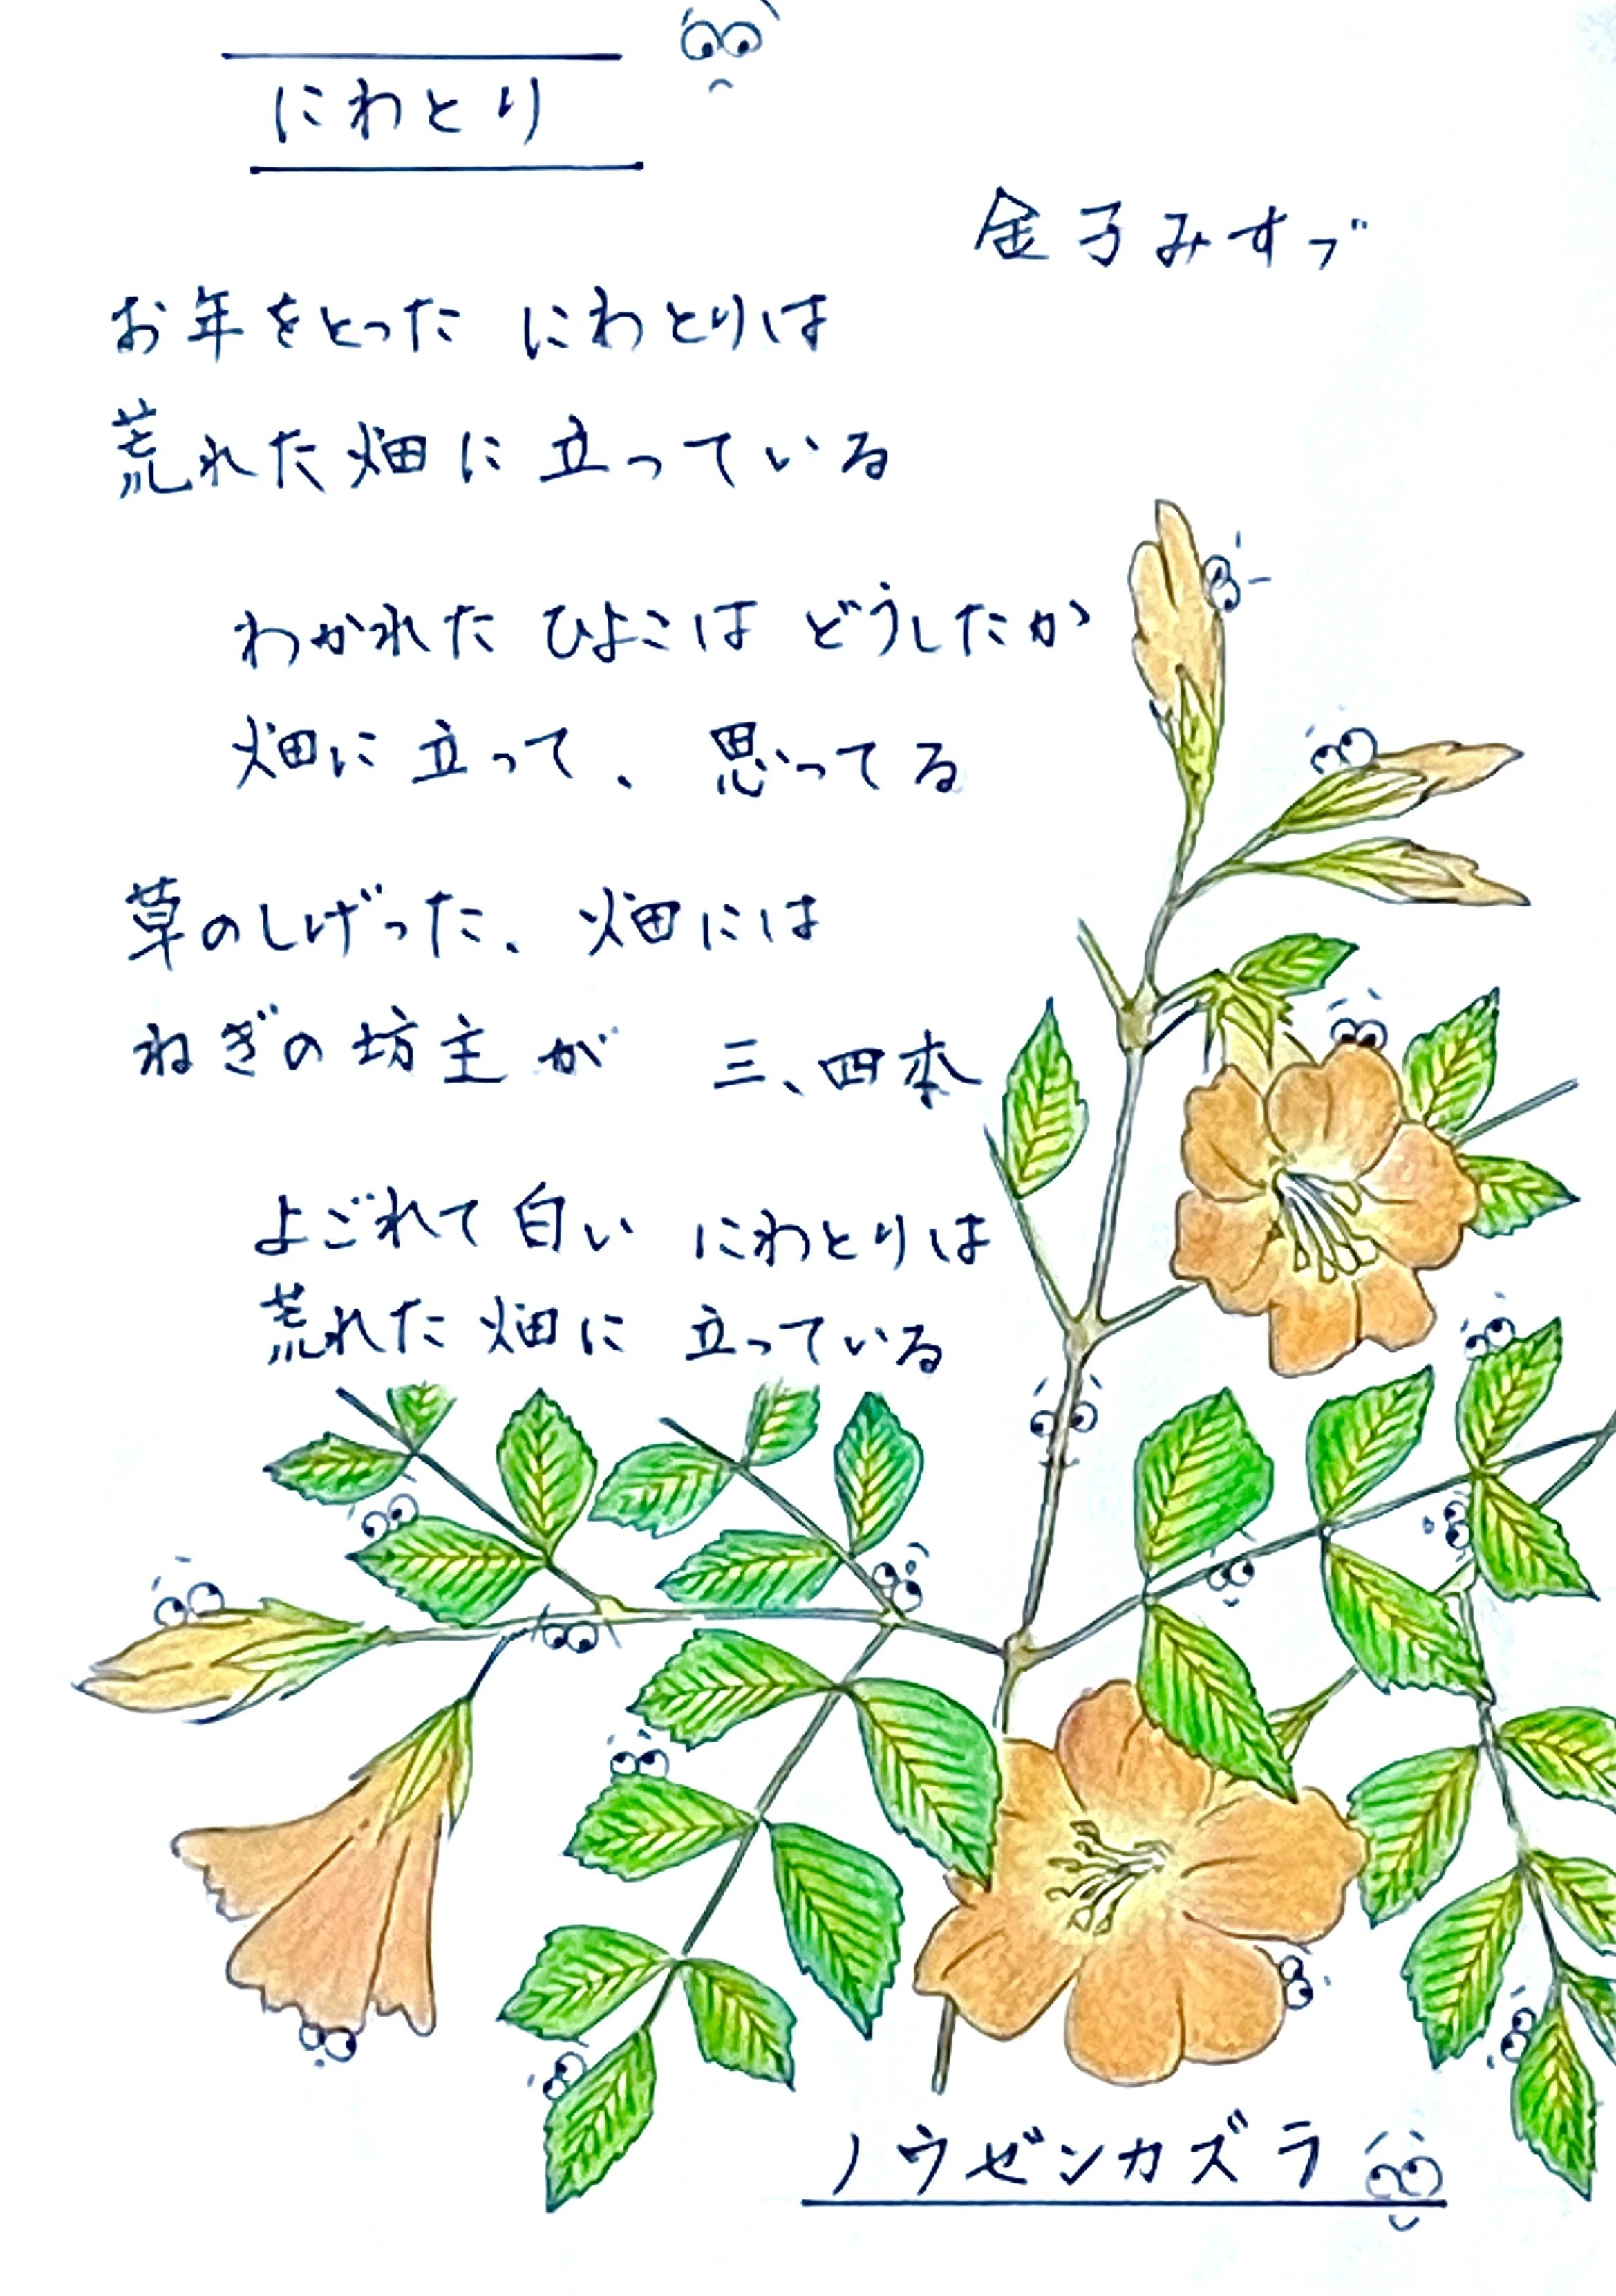 にわとり
金子みすゞ
お年をとった にわとりは
荒れた畑に 立っている
わかれた ひよこは どうしたか
畑に 立って、 思ってる
草のしげった、 畑には
ねぎの坊主が 三、四本
よごれて 白い にわとりは
荒れた 畑に 立っている
ノウゼンカズラ